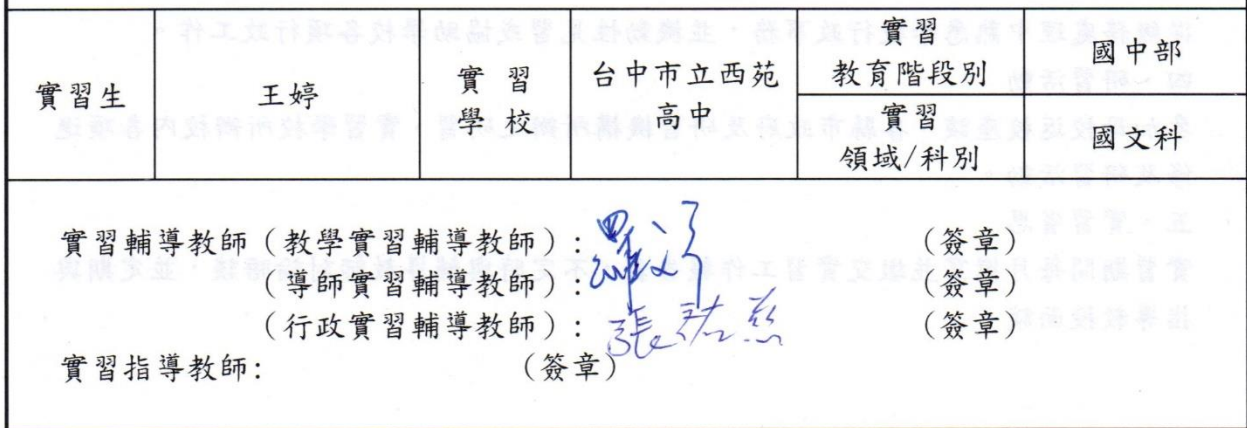 實習生 王婷 實習學校 台中市立西苑高中 實習教育階段別 國中部
實習領域/科別 國文科
實習輔導教師（教學實習輔導教師）： （簽章）
（導師實習輔導教師）： （簽章）
（行政實習輔導教師）：張祐慈 （簽章）
實習指導教師: （簽章）